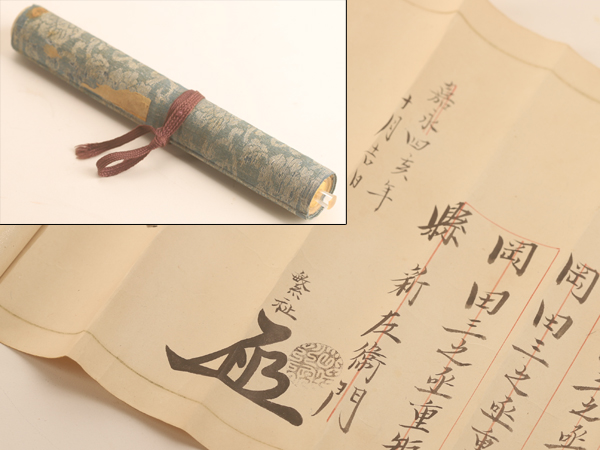 岡田三之丞
岡田三之丞重
岡田三之丞重
縣新左衛門
繁祉
嘉永四亥年
十月吉日